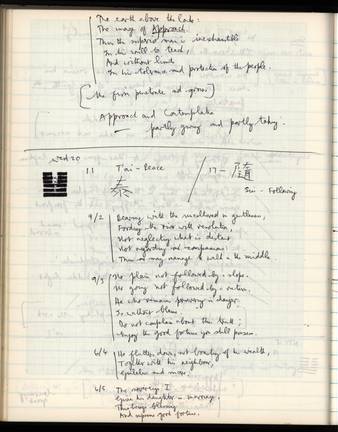 The earth above the lake:
The image of Approach.
Thus the superior man is inexhaustible
In his will to teach,
And without limits
In his tolerance and protection of the people.
[the firm penetrate and
Approach and Contemplate
partly giving and partly taking.
Wed 20
11 T'ai - Peace
泰
17 - 隨
Sui - Following
9/2 Bearing with the uncultured in gentleness,
Fording the river with resolution,
Not neglecting what is distant
Not regarding one's companions:
Thus one may manage to walk in the middle
9/3 No plain not followed by a slope.
No going not followed by a return.
He who remains persevering in danger
Is without blame
Do not complain about this truth;
Enjoy the good fortune you still possess.
6/4 He flutters down, not boasting of his wealth,
Together with his neighbor,
Guileless and sincere.
6/5 The sovereign I
Gives his daughter in marriage.
This brings blessing
And supreme good fortune.